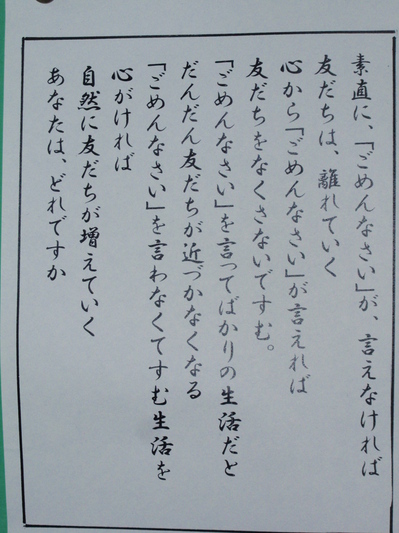 素直に、「ごめんなさい」が、言えなければ
友だちは、離れていく
心から「ごめんなさい」が言えれば
友だちをなくさないですむ。
「ごめんなさい」を言ってばかりの生活だと
だんだん友だちが近づかなくなる
「ごめんなさい」を言わなくてすむ生活を
心がければ
自然に友だちが増えていく
あなたは、どれですか